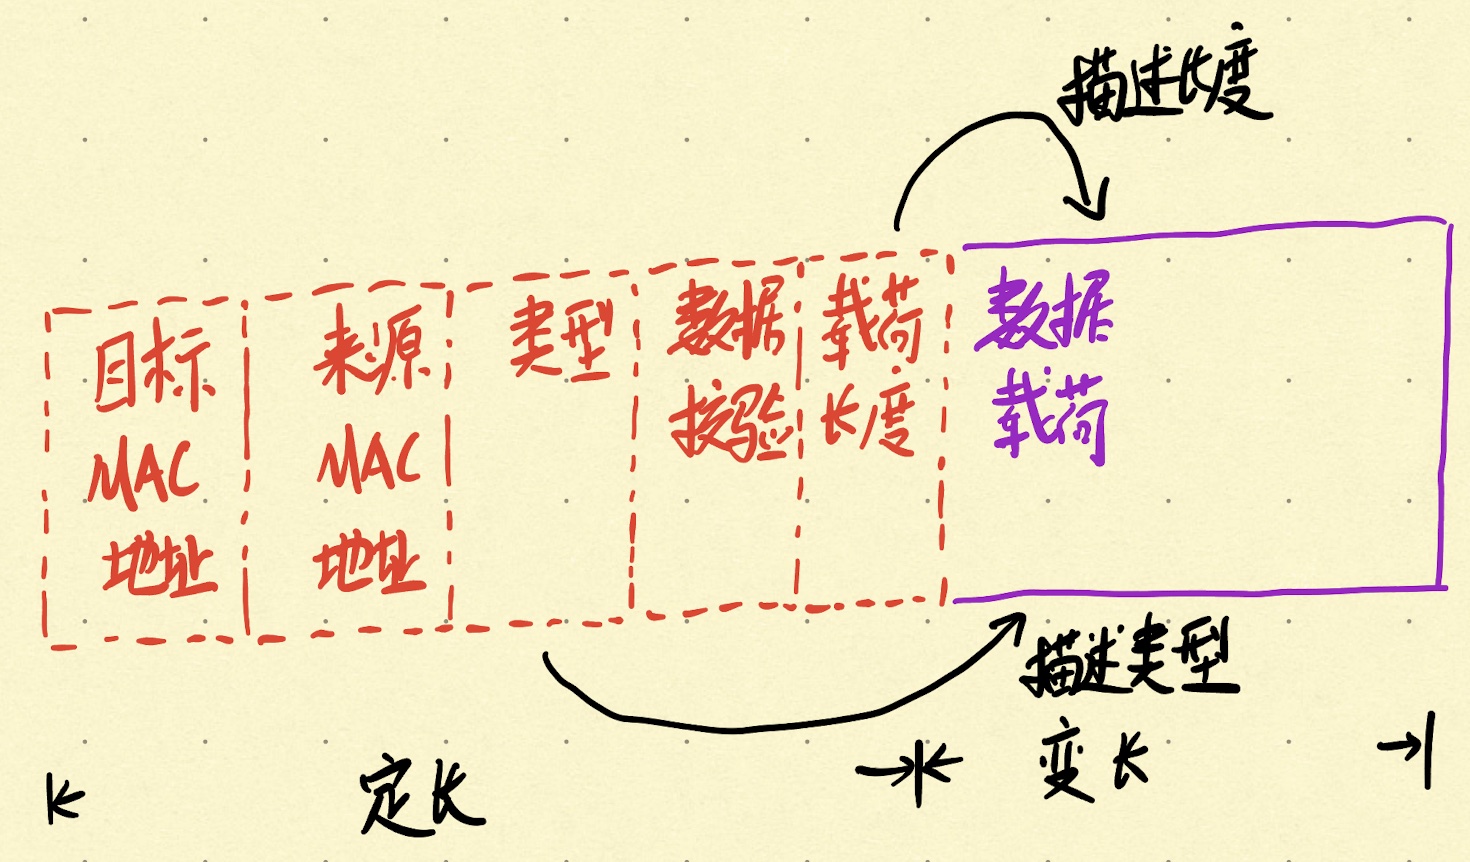 描述长度
目标
MAC
地址
来源
MAC
地址
类型
数据
校验
载荷
长度
数据
载荷
描述类型
定长
变长